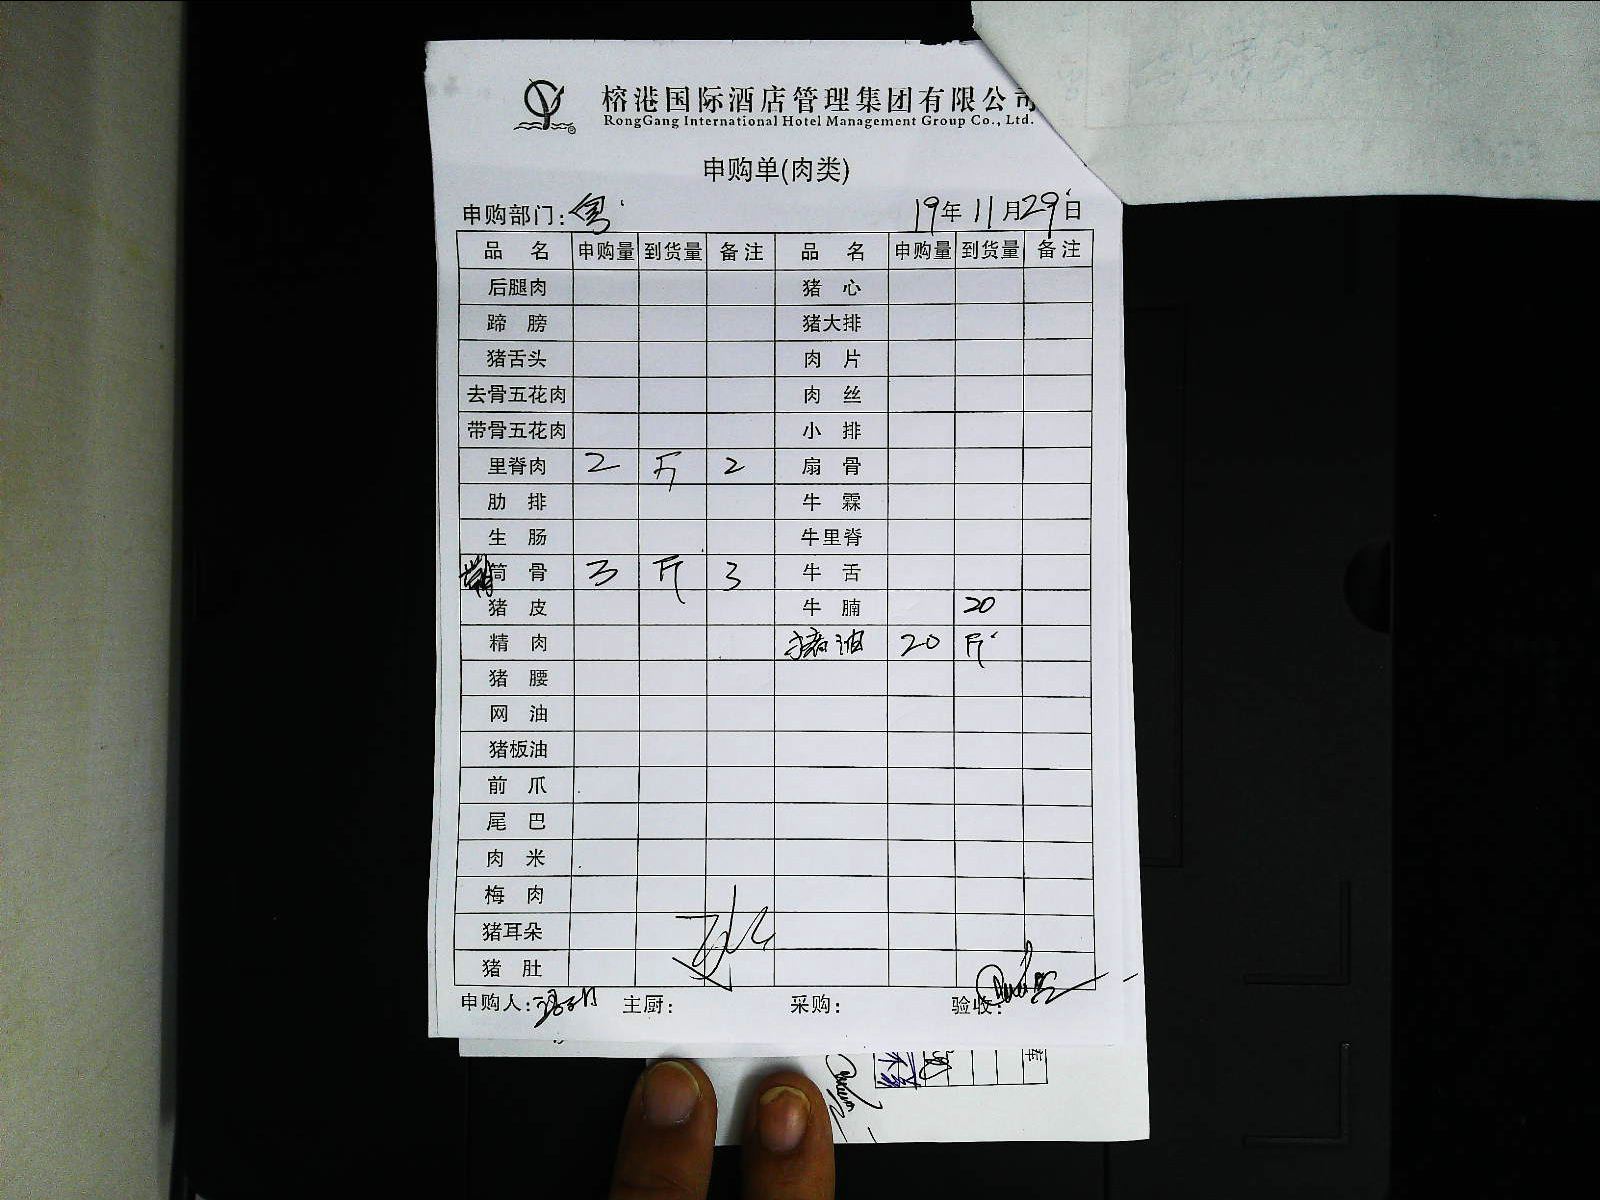 榕港国际酒店管理集团有限公司
RongGang International Hotel Management Group Co., Ltd.
申购单(肉类)
申购部门: 粤 19年11月29日
品名 申购量 到货量 备注 品名 申购量 到货量 备注
后腿肉 猪心
蹄膀 猪大排
猪舌头 肉片
去骨五花肉 肉丝
带骨五花肉 小排
里脊肉 2 斤 2 扇骨
肋排 牛霖
生肠 牛里脊
筒骨 3 斤 3 牛舌
猪皮 牛腩 20
精肉 猪油 20 斤
猪腰
网油
猪板油
前爪
尾巴
肉米
梅肉
猪耳朵
猪肚
申购人: 主厨: 采购: 验收: